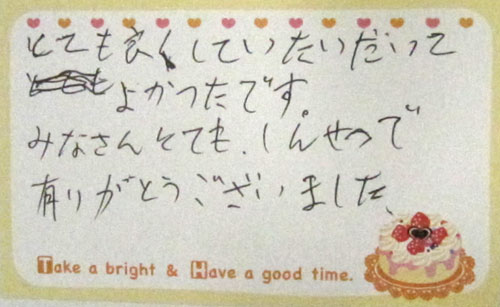 とても良くしていたいだって
よかつたです。
みなさんとても、しんせつで
有りがとうございました、
Take a bright & Have a good time.